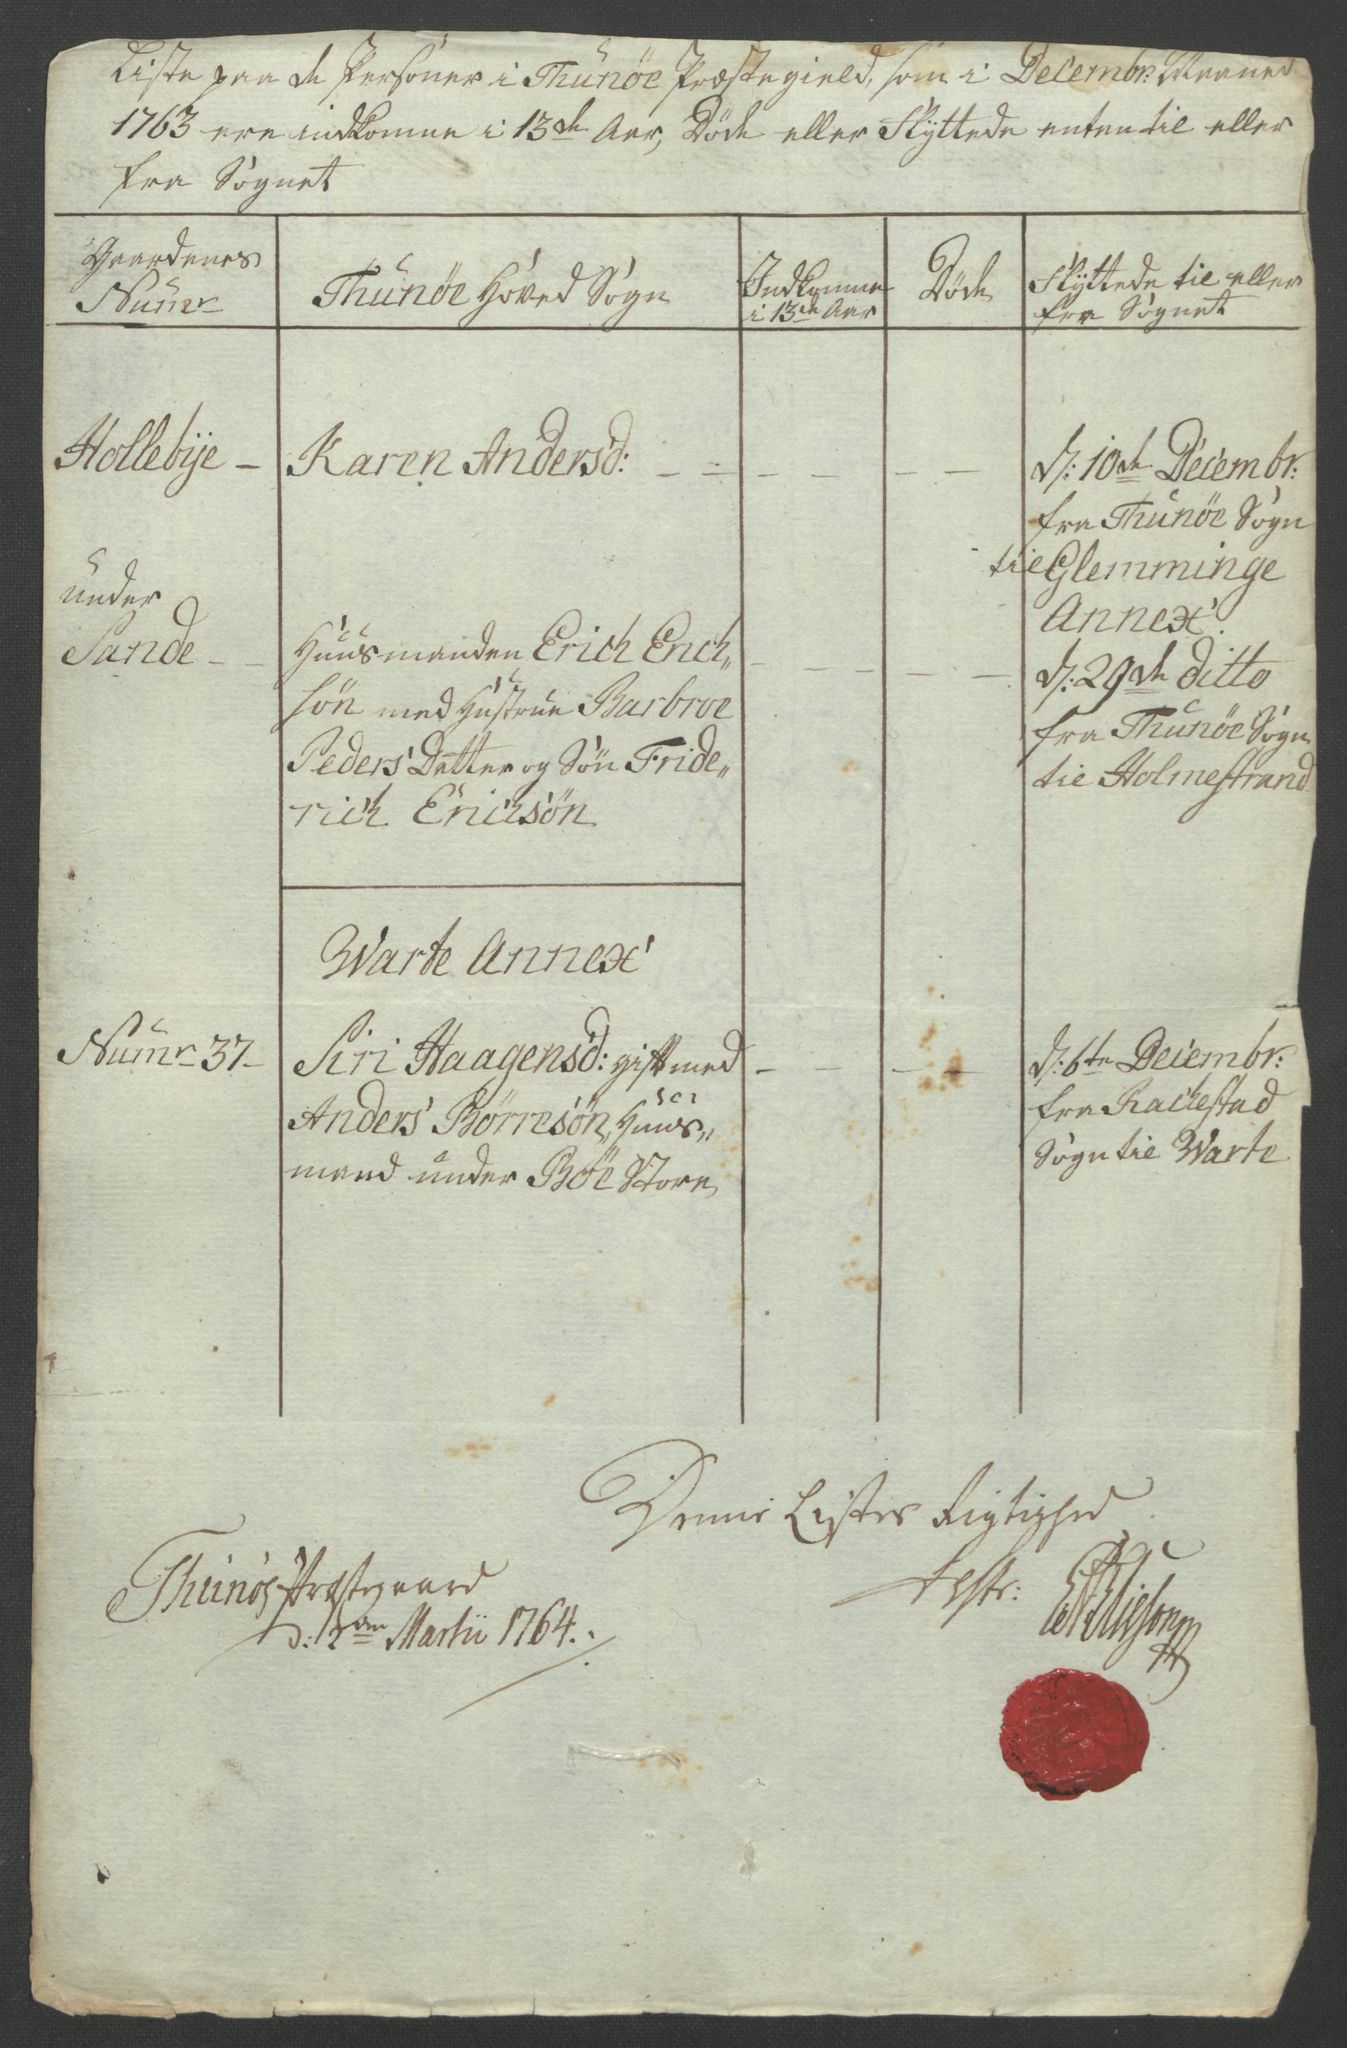 Liste paa de Persóner i Thunöe Præstegield, som i Decembr: Maaned
1763 ere indkomne i 13de Aar, Döde eller Flyttede enten til eller
fra Sognet
Gaardenes
Numr
Thunöe Hoved Sogn
Indkomne
i 13de Aar
Döde
Flyttede til eller
fra Sognet
Hollebÿe — Karen Andersd: — — — — — —
d: 10de Decembr:
fra Thunöe Sogn
til Glemminge
Annex.
under
Sande — —
Huusmanden Erich Erich„
sön med Hustrue Barbroe
Peders Datter og Sön Fride„
rich Erichsön
d: 29de ditto
fra Thunöe Sogn
til Holmestrand
Warte Annex
Numr 37 —
Siri Haagensd: gift med
Anders Börresön, Huus„
mand under Böe Store
— — — —
d: 6te Decembr:
fra Rachestad
Sogn til Warte
Denne Listes Rigtighed
testr:
Thunöe Præstegaard
d: 2den Martii 1764.